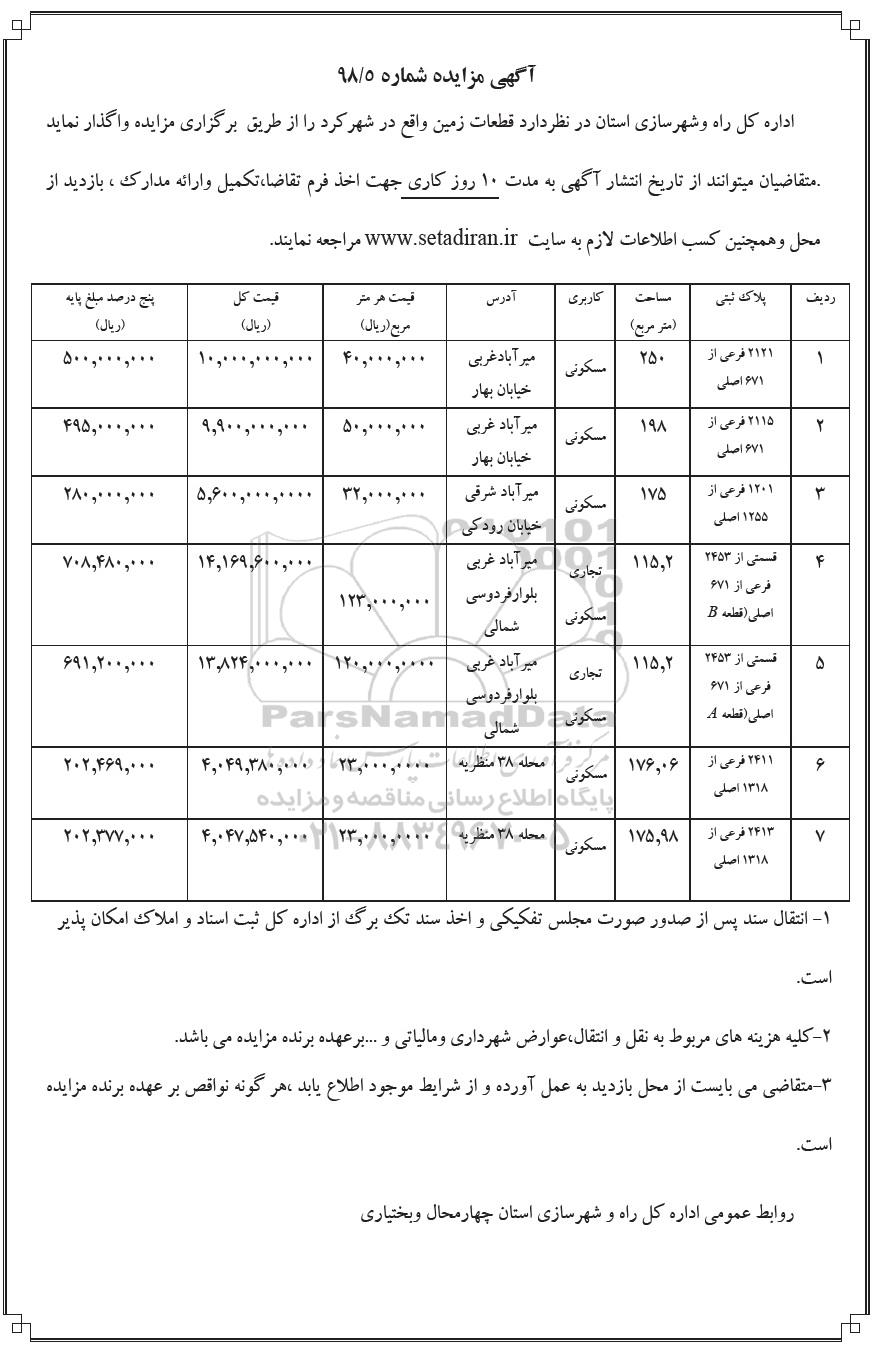 آگهی مزایده شماره ۹۸/۵
اداره کل راه وشهرسازی استان در نظردارد قطعات زمین واقع در شهرکرد را از طریق برگزاری مزایده واگذار نماید
.متقاضیان میتوانند از تاریخ انتشار آگهی به مدت ۱۰ روز کاری جهت اخذ فرم تقاضا،تکمیل وارائه مدارک ، بازدید از
محل وهمچنین کسب اطلاعات لازم به سایت www.setadiran.ir مراجعه نمایند.
ردیف پلاک ثبتی مساحت (متر مربع) کاربری آدرس قیمت هر متر مربع(ریال) قیمت کل (ریال) پنج درصد مبلغ پایه (ریال)
۱ ۲۱۲۱ فرعی از ۶۷۱ اصلی ۲۵۰ مسکونی میرآبادغربی خیابان بهار ۴۰,۰۰۰,۰۰۰ ۱۰,۰۰۰,۰۰۰,۰۰۰ ۵۰۰,۰۰۰,۰۰۰
۲ ۲۱۱۵ فرعی از ۶۷۱ اصلی ۱۹۸ مسکونی میرآباد غربی خیابان بهار ۵۰,۰۰۰,۰۰۰ ۹,۹۰۰,۰۰۰,۰۰۰ ۴۹۵,۰۰۰,۰۰۰
۳ ۱۲۰۱ فرعی از ۱۲۵۵ اصلی ۱۷۵ مسکونی میرآباد شرقی خیابان رودکی ۳۲,۰۰۰,۰۰۰ ۵,۶۰۰,۰۰۰,۰۰۰۰ ۲۸۰,۰۰۰,۰۰۰
۴ قسمتی از ۲۴۵۳ فرعی از ۶۷۱ اصلی(قطعه B ۱۱۵,۲ تجاری مسکونی میرآباد غربی بلوارفردوسی شمالی ۱۲۳,۰۰۰,۰۰۰ ۱۴,۱۶۹,۶۰۰,۰۰۰ ۷۰۸,۴۸۰,۰۰۰
۵ قسمتی از ۲۴۵۳ فرعی از ۶۷۱ اصلی(قطعه A. ۱۱۵,۲ تجاری مسکونی میرآباد غربی بلوارفردوسی شمالی ۱۲۰,۰۰۰,۰۰۰۰ ۱۳,۸۲۴,۰۰۰,۰۰۰ ۶۹۱,۲۰۰,۰۰۰
۶ ۲۴۱۱ فرعی از ۱۳۱۸ اصلی ۱۷۶,۰۶ مسکونی محله ۳۸ منظریه ۲۳,۰۰۰,۰۰۰۰ ۴,۰۴۹,۳۸۰,۰۰۰ ۲۰۲,۴۶۹,۰۰۰
۷ ۲۴۱۳ فرعی از ۱۳۱۸ اصلی ۱۷۵,۹۸ مسکونی محله ۳۸ منظریه ۲۳,۰۰۰,۰۰۰۰ ۴,۰۴۷,۵۴۰,۰۰۰ ۲۰۲,۳۷۷,۰۰۰
ParsNamadData
پایگاه اطلاع رسانی مناقصه و مزایده
۰۲۱-۸۸۳۴۹۶۷۰-۵
۱- انتقال سند پس از صدور صورت مجلس تفکیکی و اخذ سند تک برگ از اداره کل ثبت اسناد و املاک امکان پذیر
است.
۲-کلیه هزینه های مربوط به نقل و انتقال،عوارض شهرداری ومالیاتی و ...برعهده برنده مزایده می باشد.
۳-متقاضی می بایست از محل بازدید به عمل آورده و از شرایط موجود اطلاع یابد ،هر گونه نواقص بر عهده برنده مزایده
است.
روابط عمومی اداره کل راه و شهرسازی استان چهارمحال وبختیاری